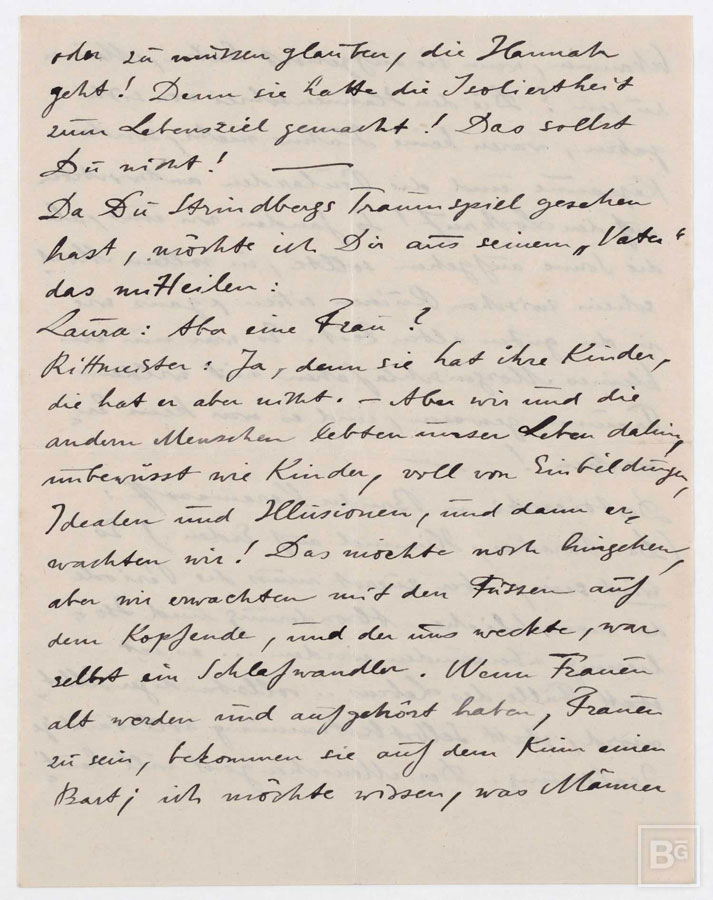 oder zu müssen glauben, die Hannah
geht! Denn sie hatte die Isoliertheit
zum Lebensziel gemacht! Das sollst
Du nicht! —
Da Du Strindbergs Traumspiel gesehen
hast, möchte ich Dir aus seinem „Vater“
das mitteilen:
Laura: Aber eine Frau?
Rittmeister: Ja, denn sie hat ihre Kinder,
die hat er aber nicht. – Aber wir und die
andern Menschen lebten unser Leben dahin,
unbewusst wie Kinder, voll von Einbildungen,
Idealen und Illusionen, und dann er-
wachten wir! Das möchte noch hingehen,
aber wir erwachten mit den Füssen auf
dem Kopfende, und der uns weckte, war
selbst ein Schlafwandler. Wenn Frauen
alt werden und aufgehört haben, Frauen
zu sein, bekommen sie auf dem Kinn einen
Bart; ich möchte wissen, was Männer
BG